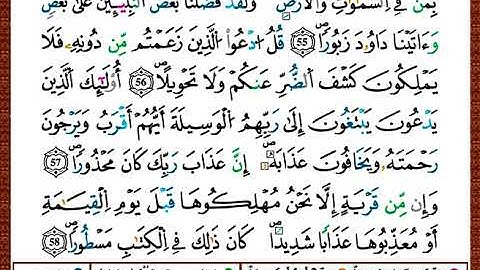 بِمَن فِي ٱلسَّمَٰوَٰتِ وَٱلْأَرْضِ ۗ وَلَقَدْ فَضَّلْنَا بَعْضَ ٱلنَّبِيِّۦنَ عَلَىٰ بَعْضٍ ۖ
وَءَاتَيْنَا دَاوُۥدَ زَبُورًا ۝55 قُلِ ٱدْعُوا۟ ٱلَّذِينَ زَعَمْتُم مِّن دُونِهِۦ فَلَا
يَمْلِكُونَ كَشْفَ ٱلضُّرِّ عَنكُمْ وَلَا تَحْوِيلًا ۝56 أُو۟لَٰٓئِكَ ٱلَّذِينَ
يَدْعُونَ يَبْتَغُونَ إِلَىٰ رَبِّهِمُ ٱلْوَسِيلَةَ أَيُّهُمْ أَقْرَبُ وَيَرْجُونَ
رَحْمَتَهُۥ وَيَخَافُونَ عَذَابَهُۥٓ ۚ إِنَّ عَذَابَ رَبِّكَ كَانَ مَحْذُورًا ۝57
وَإِن مِّن قَرْيَةٍ إِلَّا نَحْنُ مُهْلِكُوهَا قَبْلَ يَوْمِ ٱلْقِيَٰمَةِ
أَوْ مُعَذِّبُوهَا عَذَابًا شَدِيدًا ۚ كَانَ ذَٰلِكَ فِي ٱلْكِتَٰبِ مَسْطُورًا ۝58